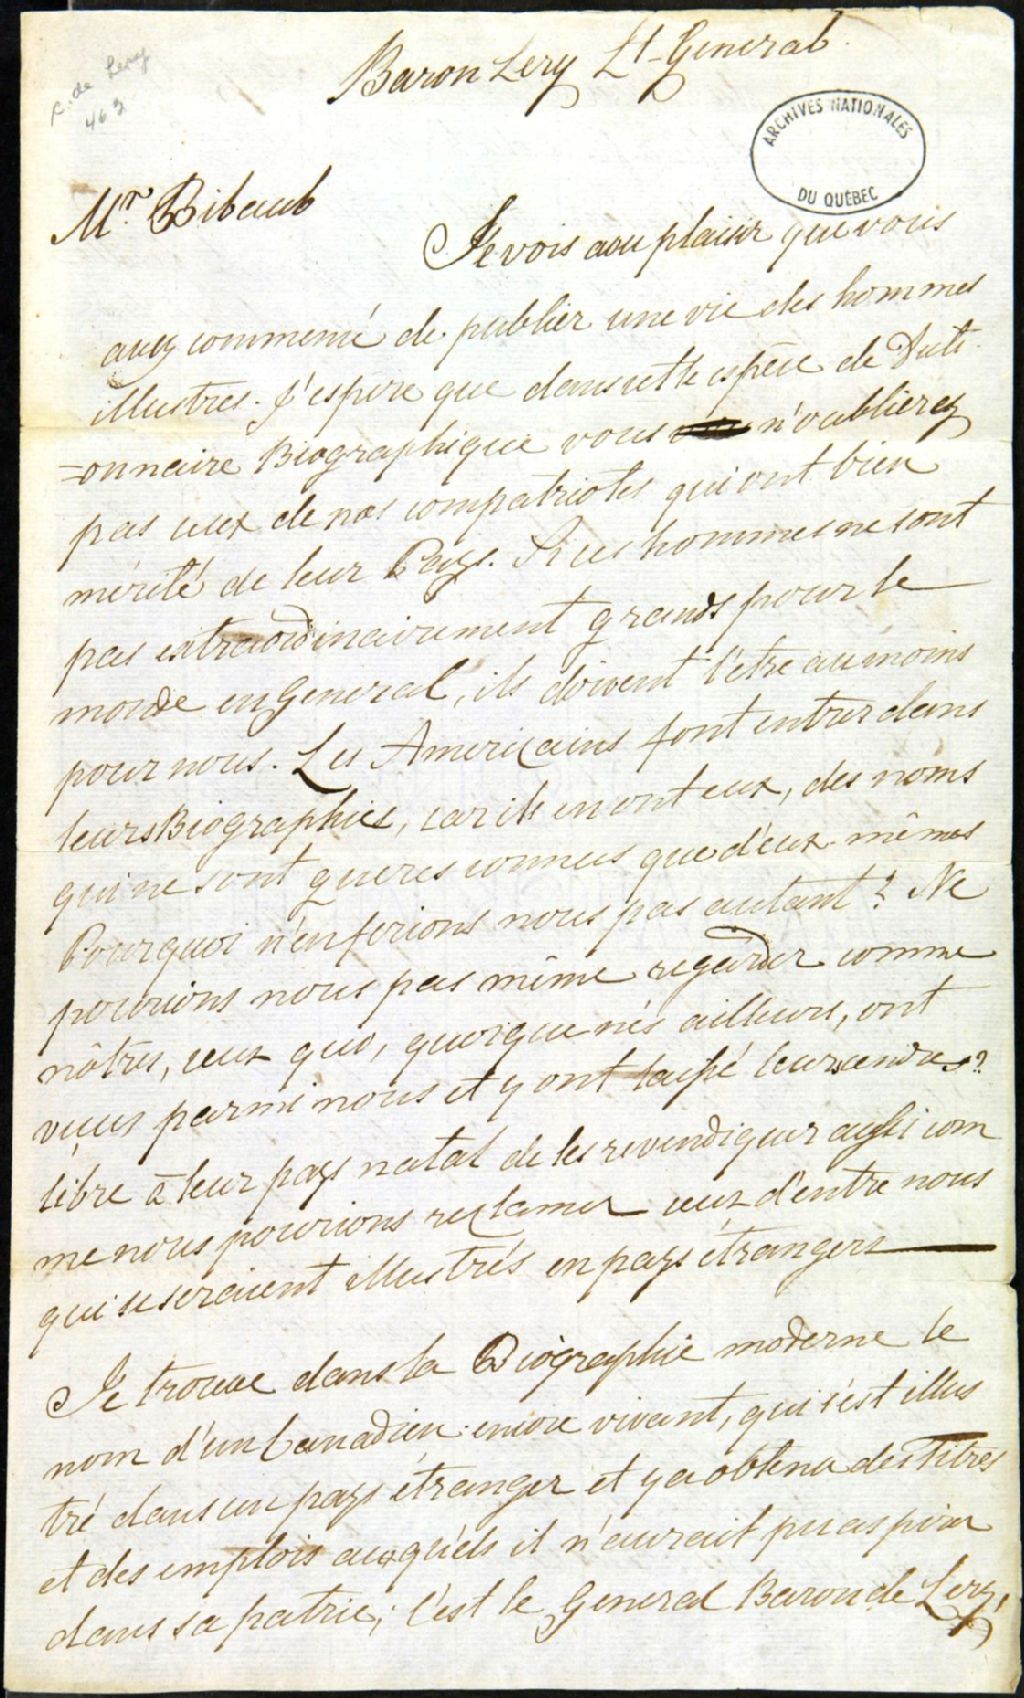 Baron Lery Lt-General
R. de Lery
463
ARCHIVES NATIONALES
DU QUÉBEC
Mr. Bibaub
Je vois avec plaisir que vous
avez commencé de publier une vie des hommes
illustres. J'espère que dans cette espèce de Dicti
=onnaire Biographique vous n'oublierez
pas ceux de nos compatriotes qui ont bien
mérité de leur Pays. Si ces hommes ne sont
pas extraordinairement grands pour le
monde en General, ils doivent l'être au moins
pour nous. Les Americains font entrer dans
leurs Biographies, car ils en ont eux, des noms
qui ne sont gueres connus que d'eux-mêmes
Pourquoi n'en ferions nous pas autant? Ne
pourions nous pas même regarder comme
nôtres, ceux qui, quoique nés ailleurs, ont
vecus parmi nous et y ont laissé leurs cendres?
libre à leur pays natal de les revendiquer aussi com
me nous pourions reclamer ceux d'entre nous
qui se seraient illustrés en pays étrangers
Je trouve dans la Biographie moderne le
nom d'un Canadien encore vivant, qui s'est illus
tré dans un pays étranger et y a obtenu des Titres
et des emplois auxquels il n'aurait pu aspirer
dans sa patrie; c'est le General Baron de Lery,